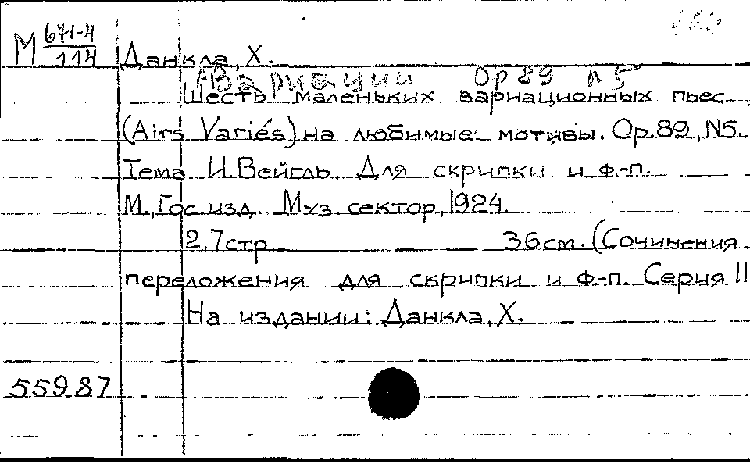 М 671-4
114
Данкла, Х.
(Вариации Ор 89 №5
Шесть маленьких вариационных пьес
(Airs Variés) на любимые мотивы. Ор.89, N5.
Тема И.Вейгль. Для скрипки и ф-п.
М., Гос. изд. Муз. сектор, 1924.
2,7стр 36см. (Сочинения
переложения для скрипки и ф-п. Серия II
На издании: Данкла, Х.
55987